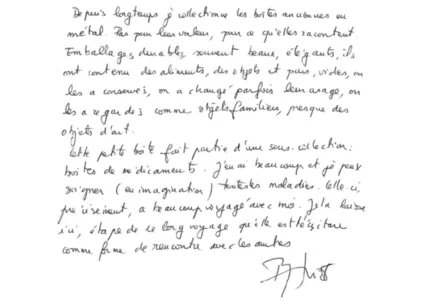 Depuis longtemps je collectionne les boîtes anciennes en
métal. Pas pour leur valeur, pour ce qu'elles racontent
Emballages durables, souvent beaux, élégants, ils
ont contenu des aliments, des objets et puis, vides, on
les a conservés, on a changé parfois leur usage, on
les a regardés comme objets familiers, presque des
objets d'art.
Cette petite boîte fait partie d'une sous-collection :
boîtes de médicaments. J'en ai beaucoup et je peux
soigner (en imagination) toutes les maladies. Celle-ci,
précisément, a beaucoup voyagé avec moi. Je la laisse
ici, étape de ce long voyage qu'elle est
comme forme de rencontre avec les autres